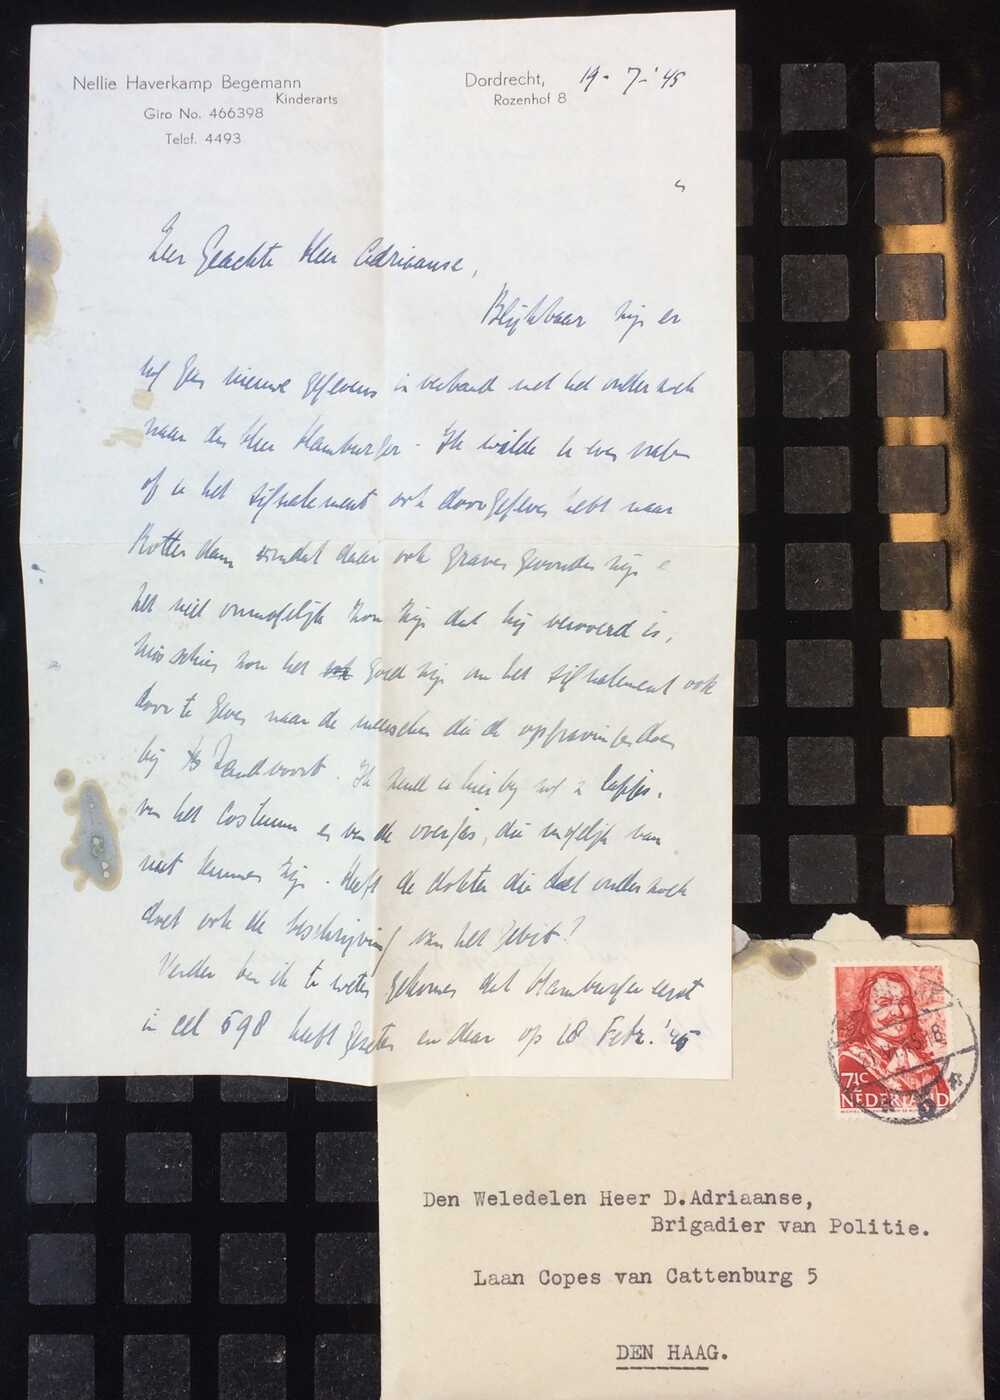 Nellie Haverkamp Begemann
Kinderarts
Giro No. 466398
Telef. 4493
Dordrecht, 19-7-'45
Rozenhof 8
Zeer Geachte Heer Adriaanse,
Blijkbaar zijn er
nog geen nieuwe gegevens in verband met het onderzoek
naar den Heer Hamburger. Ik wilde U even vragen
of U het signalement ook doorgegeven hebt naar
Rotterdam omdat daar ook graven gevonden zijn &
het niet onmogelijk zou zijn dat hij vervoerd is,
misschien zou het goed zijn om het signalement ook
door te geven naar de menschen die de opgravingen doen
bij Zandvoort. Ik zend U hierbij nog 'n lapje.
van het costuum en van de overjas, die mogelijk van
nut kunnen zijn. Heeft de dokter die dat onderzoek
doet ook de beschrijving van het gebit?
Verder ben ik te weten gekomen dat Hamburger eerst
in cel 598 heeft gezeten en daar op 28 Febr. '45
7½c
NEDERLAND
Den Weledelen Heer D.Adriaanse,
Brigadier van Politie.
Laan Copes van Cattenburg 5
DEN HAAG.